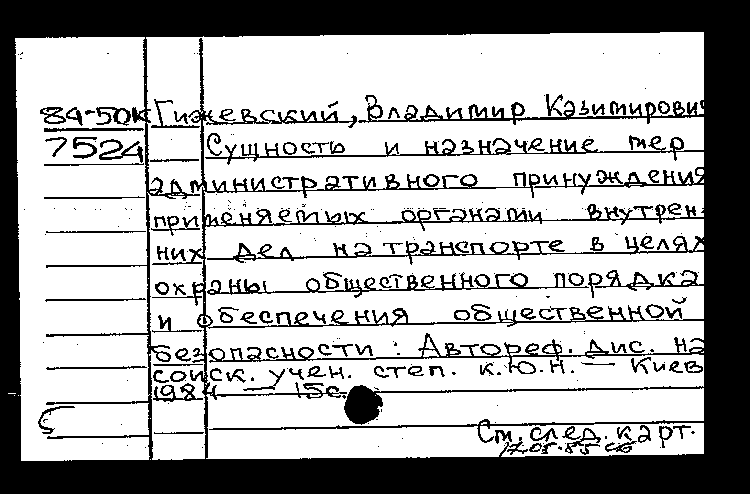 84-50к Гижевский, Владимир Казимирович
7524 Сущность и назначение мер
административного принуждения
применяемых органами внутрен-
них дел на транспорте в целях
охраны общественного порядка
и обеспечения общественной
безопасности: Автореф. дис. на
соиск. учен. степ. к.ю.н. — Киев
1984 — 15с.
См. след. карт.
17.05.85